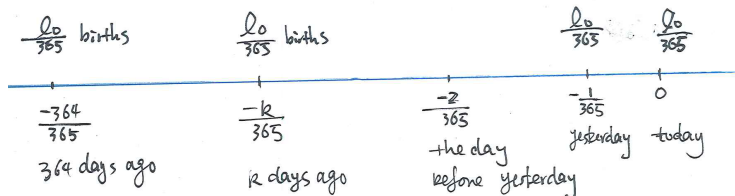 l₀/365 births l₀/365 births l₀/365 l₀/365
-364/365 -k/365 -2/365 -1/365 0
364 days ago k days ago the day before yesterday yesterday today